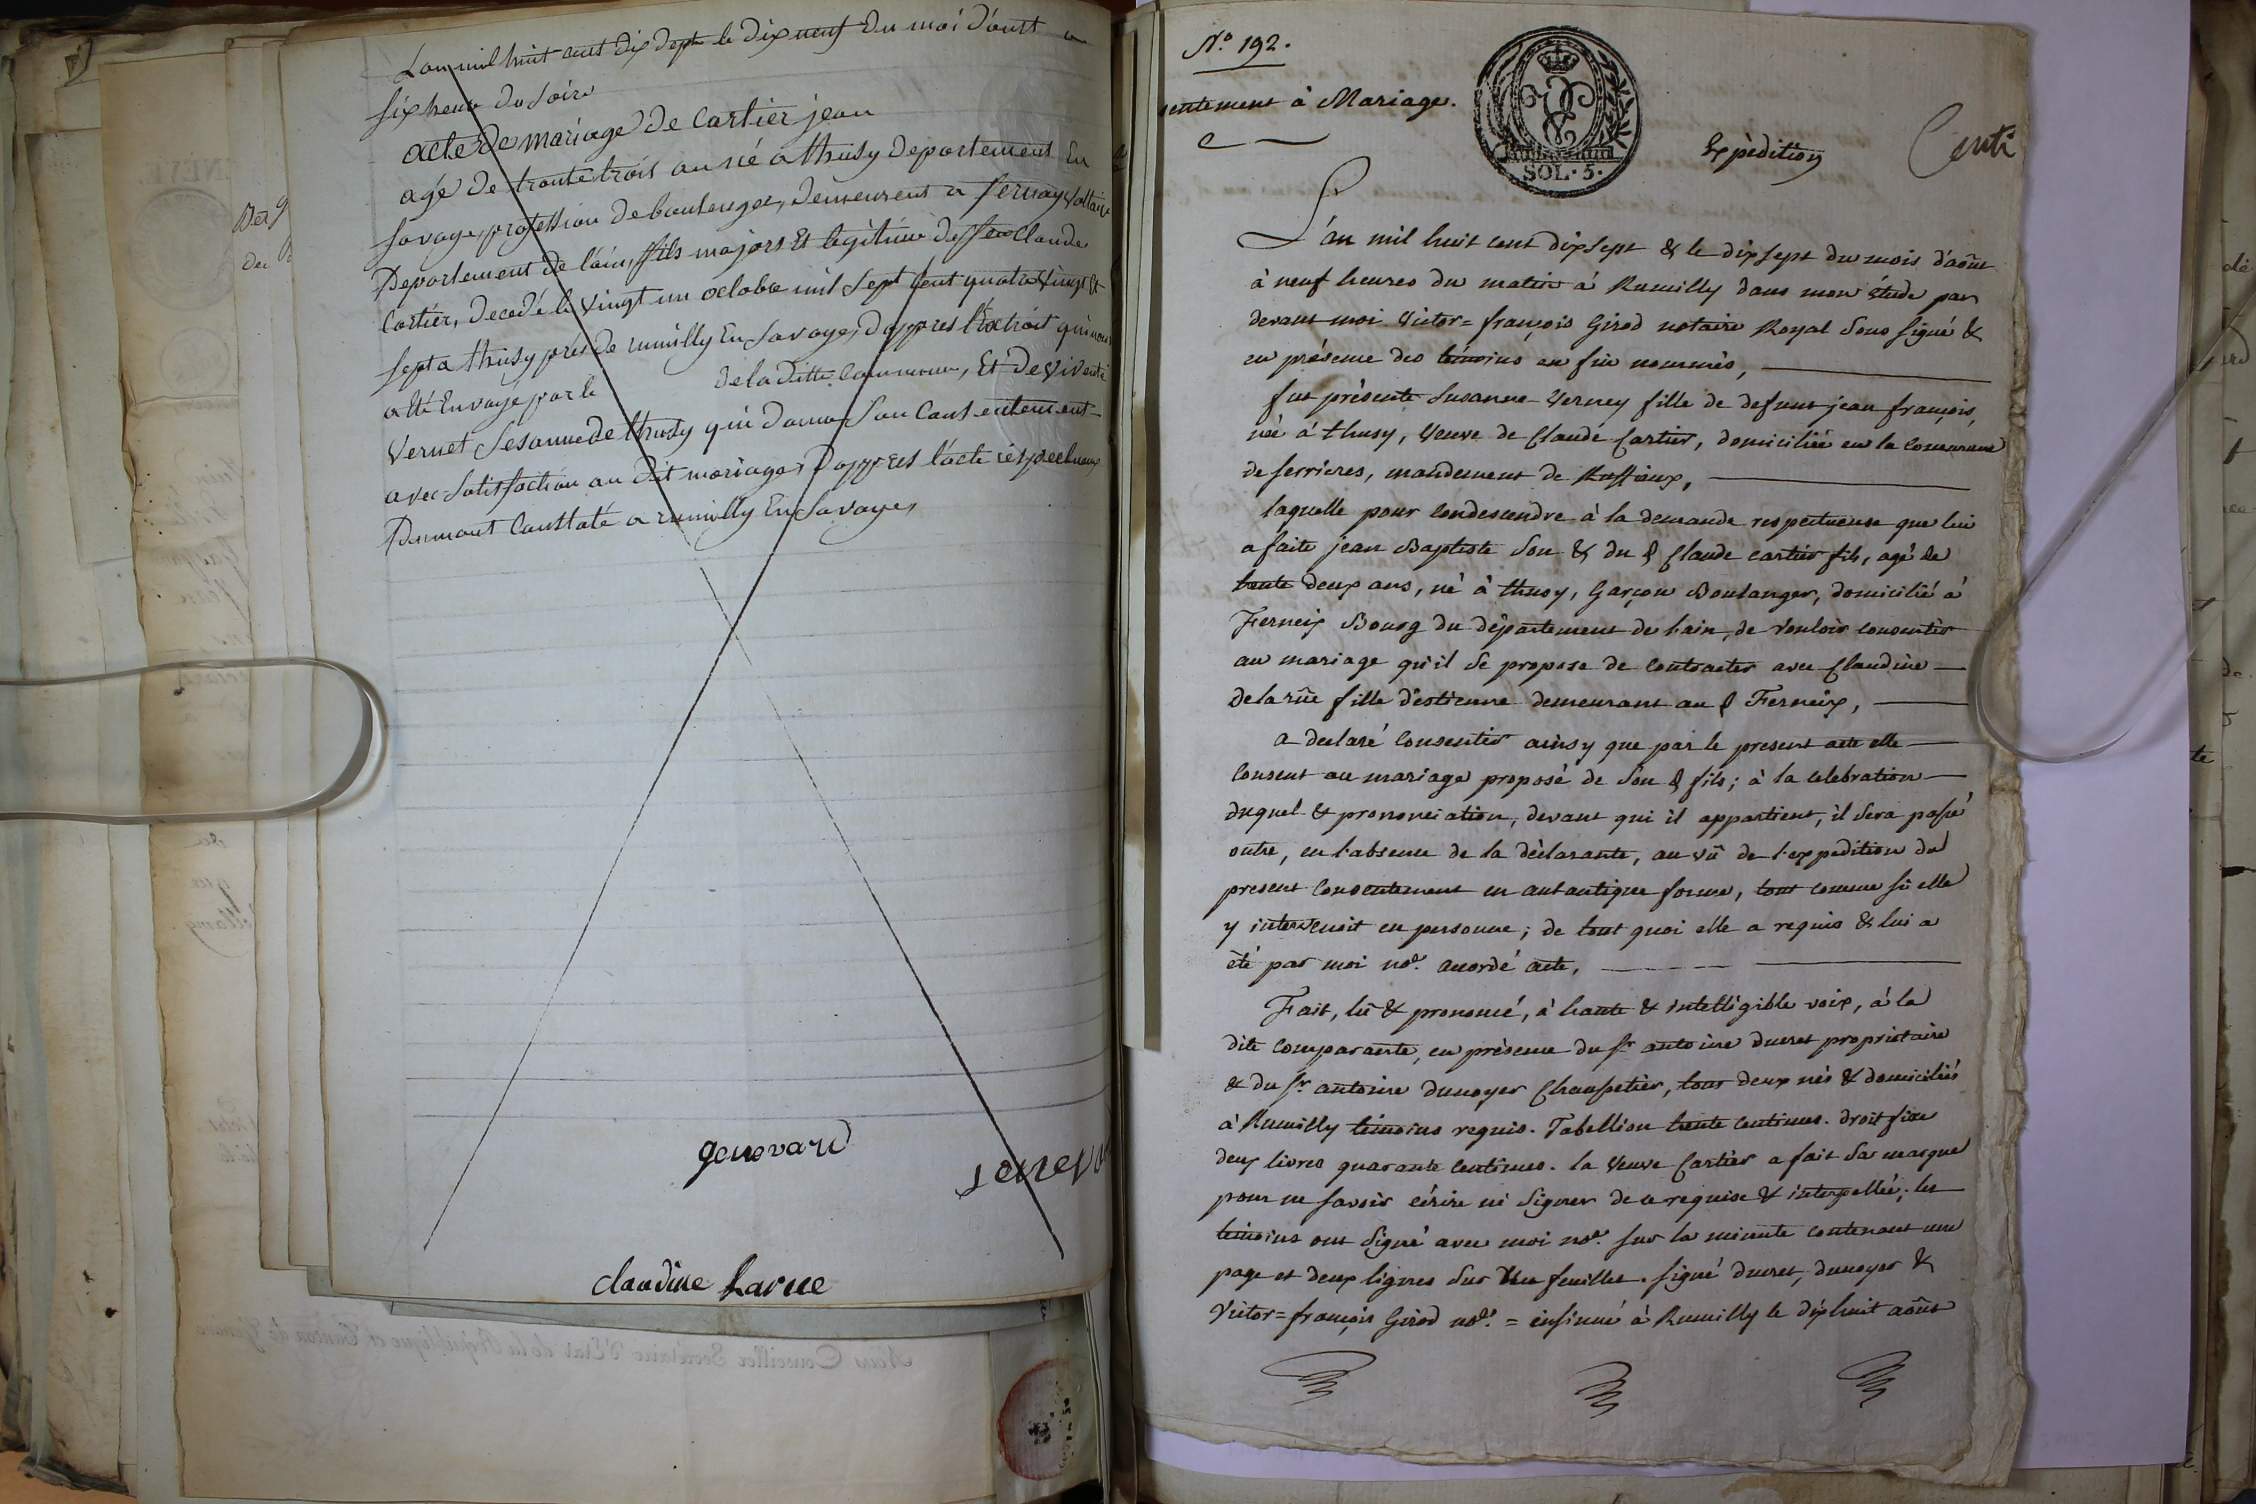 L'an mil huit cent dix sept le dix neuf du moi d'aout a
six heur du soire
acte de mariage de Cartier jean
agé de trante trois an né a thusy departement En
savoye, profession de boulenger, demeurent a fernay Voltaire
Departement de l'ain, fils majors Et legitime de feu Claude
Cartier, decedé le vingt un octobre mil sept cent quatre vingt et
sept a thusy près de rumilly En Savoye, d'appres l'Extrait qui nou
a été Envoyé par le          de la ditte Commune, Et De vivente
Vernet Susanne de thusy qui donne son Consentement
avec Satisfaction au dit mariage, d'appres l'acte respectueux
Dument Constaté a rumilly En Savoye,
genevard
claudine Larue
N.º 192.
sentement à Mariage.
SOL. 5.
Expédition
Centi
L'an mil huit cent dix sept & le dix sept du mois d'août
à neuf heures du matin à Rumilly dans mon étude par
devant moi Victor=françois Girod notaire Royal sous signé &
en présence des témoins en fin nommés,
fut présente Susanne Verney fille de defunt jean françois,
née à thusy, Veuve de Claude Cartier, domiciliée en la commune
de ferrieres, mandement de Ruffieux,
laquelle pour condescendre à la demande respectueuse que lui
a faite jean Baptiste son & du d Claude cartier fils, agé de
trente deux ans, né à thusy, Garçon Boulanger, domicilié à
Ferneix Bourg du département de l'ain, de vouloir consentir
au mariage qu'il se propose de contracter avec Claudine
delarüe fille d'estienne demeurant au d Ferneix,
a declaré consentir ainsy que par le present acte elle
consent au mariage proposé de son d fils; à la celebration
duquel & prononciation, devant qui il appartient, il sera passé
outre, en l'absence de la déclarante, au vû de l'expedition du
present consentement en autantique forme, tout comme si elle
y intervenoit en personne; de tout quoi elle a requis & lui a
été par moi no.re accordé acte,
Fait, lû & prononcé, à haute & intelligible voix, à la
dite comparante, en présence du s.r antoine ducret propriétaire
& du s.r antoine dunoyer Chapelier, tous deux nés & domiciliés
à Rumilly témoins requis. Tabellion trente centimes. droit fixe
deux livres quarante centimes. la Veuve Cartier a fait sa marque
pour ne savoir écrire ni signer de ce requise & interpellée, les
témoins ont signé avec moi no.re sur la minute contenant une
page et deux lignes sur un feuillet. signé ducret, dunoyer &
Victor=françois Girod no.re = insinué à Rumilly le dix huit août